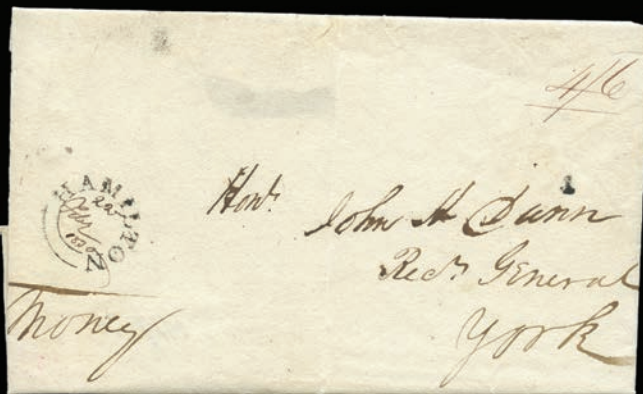 4/6
HAMILTON
22
Jan
1830
Hon.
John H Dunn
Recr. General
York
Money